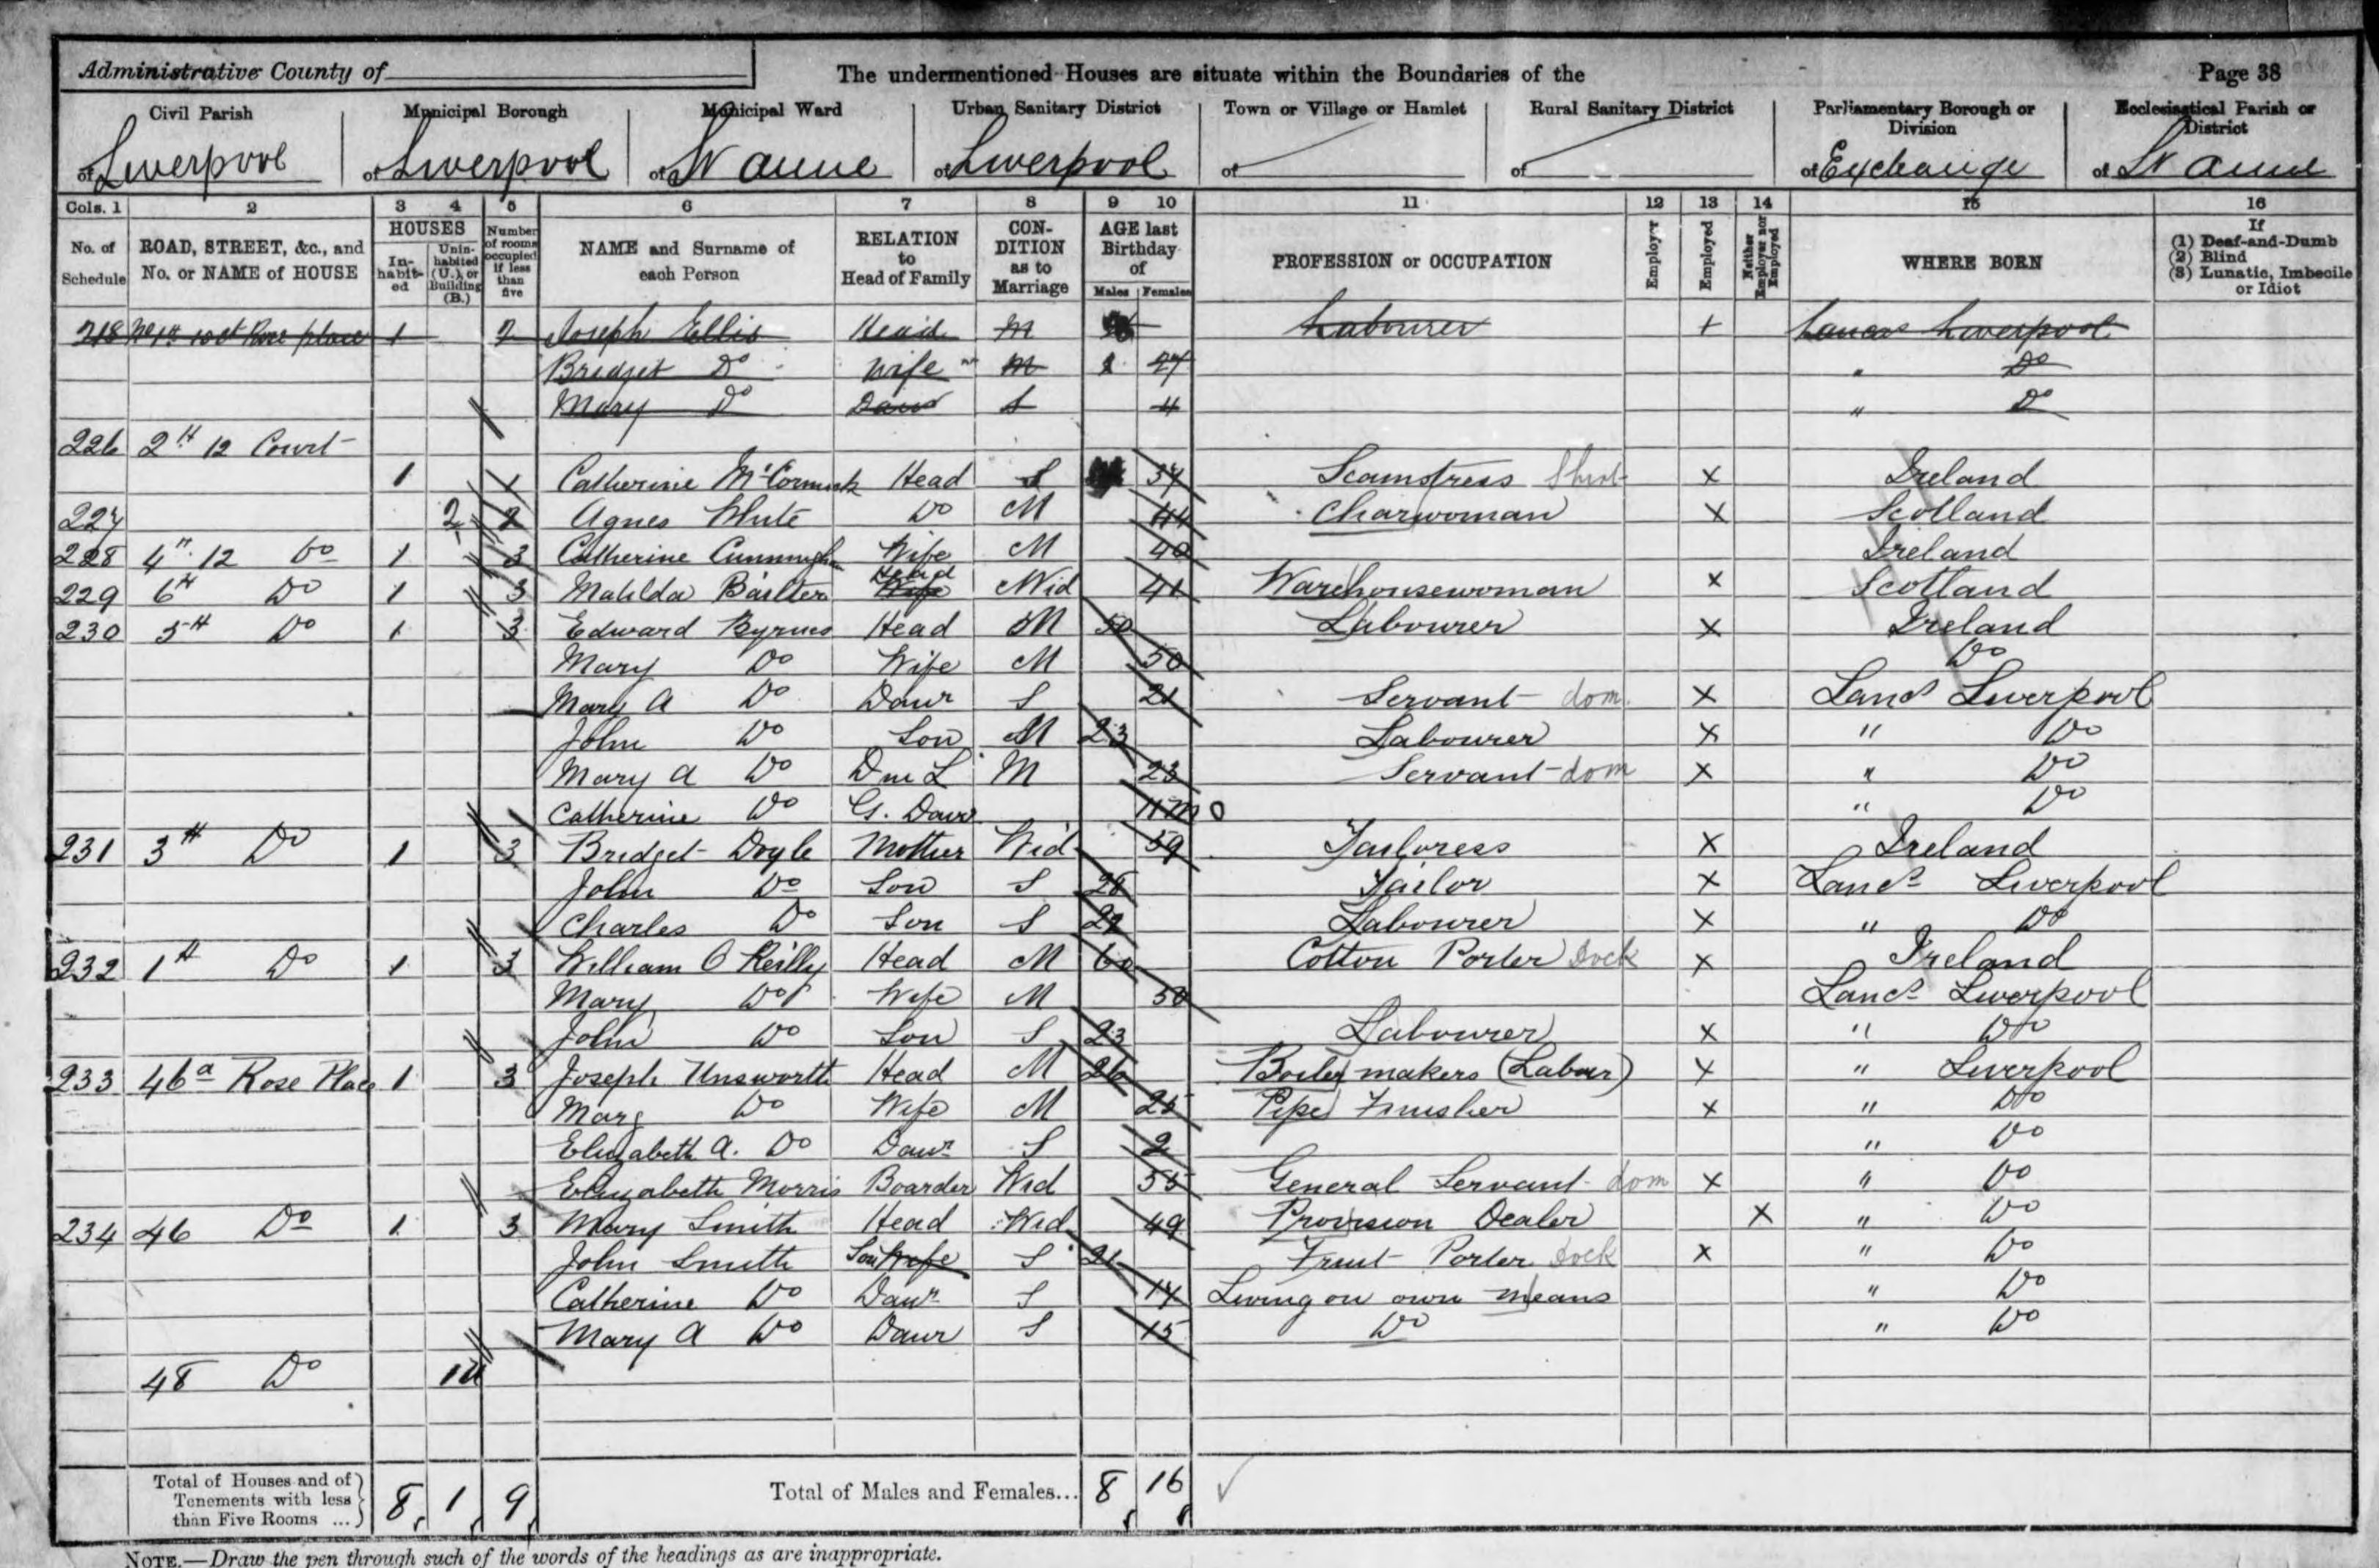 Administrative County of The undermentioned Houses are situate within the Boundaries of the Page 38
Civil Parish Municipal Borough Municipal Ward Urban Sanitary District Town or Village or Hamlet Rural Sanitary District Parliamentary Borough or Division Ecclesiastical Parish or District
of Liverpool of Liverpool of St Anne of Liverpool of of of Exchange of St Anne
Cols. 1 2 3 4 5 6 7 8 9 10 11 12 13 14 15 16
No. of Schedule ROAD, STREET, &c., and No. or NAME of HOUSE HOUSES In-habit-ed Unin-habited (U.), or Building (B.) Number of rooms occupied if less than five NAME and Surname of each Person RELATION to Head of Family CON-DITION as to Marriage AGE last Birthday of Males Females PROFESSION or OCCUPATION Employer Employed Neither Employer nor Employed WHERE BORN If (1) Deaf-and-Dumb (2) Blind (3) Lunatic, Imbecile or Idiot
218 Rose place 1 2 Joseph Ellis Head M Labourer Lancas Liverpool
Bridget Do Wife M 27 " Do
Mary Do Daur S 4 " Do
226 2 H 12 Court
1 1 Catherine McCormick Head S 37 Seamstress Shirt X Ireland
227 2 2 Agnes White Do M 44 Charwoman X Scotland
228 4 H 12 Do 1 3 Catherine Cunningham Wife M 40 Ireland
229 6 H Do 1 3 Matilda Head Wife Wid 41 Warehousewoman X Scotland
230 5 H Do 1 3 Edward Byrnes Head M 50 Labourer X Ireland
Mary Do Wife M 50 Do
Mary A Do Daur S 21 Servant dom. X Lancs Liverpool
John Do Son M 23 Labourer X " Do
Mary A Do D in L M 23 Servant dom X " Do
Catherine Do G. Daur 11 mo " Do
231 3 H Do 1 3 Bridget Doyle Mother Wid 59 Tailoress X Ireland
John Do Son S 28 Tailor X Lancs Liverpool
Charles Do Son S Labourer X " Do
232 1 H Do 1 3 William O Reilly Head M 60 Cotton Porter Dock X Ireland
Mary Do Wife M 50 Lancs Liverpool
John Do Son S 23 Labourer X " Do
233 46a Rose Place 1 3 Joseph Unsworth Head M 26 Boiler makers (Labour) X " Liverpool
Mary Do Wife M 25 Pipe Finisher X " Do
Elizabeth A. Do Daur S 2 " Do
Elizabeth Morris Boarder Wid 55 General Servant dom X " Do
234 46 Do 1 3 Mary Smith Head Wid 49 Provision Dealer X " Do
John Smith Son Wife S 21 Fruit Porter Dock X " Do
Catherine Do Daur S 17 Living on own means " Do
Mary A Do Daur S 15 Do " Do
48 Do 1U
Total of Houses and of Tenements with less than Five Rooms ... 8 1 9 Total of Males and Females... 8 16
NOTE.—Draw the pen through such of the words of the headings as are inappropriate.